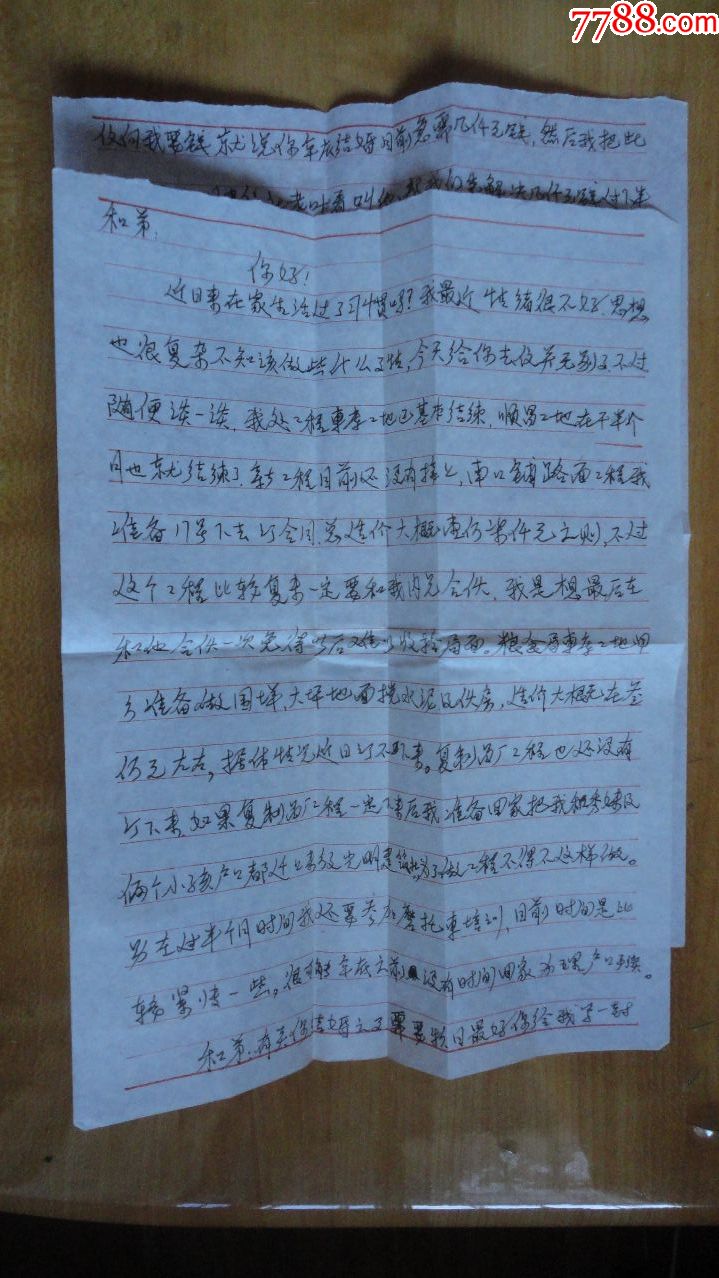 7788.com
信向我要钱就说你年底结婚目前急需几仟元钱,然后我把此
和弟:
你好!
近日来在家生活过了习惯吗?我最近情绪很不好,思想
也很复杂不知该做些什么事情,今天给你去信并无别事不过
随便谈一谈,我处工程車庫工地已基本结束,顺昌工地在下半个
月也就结束了.新工程目前还没有接上,南口镇路面工程我
准备17号下去订合同.总造价大概壹仟
元之间,不过
这个工程比较复杂一定要和我内兄合伙,我是想最后在
和他合伙一次免得以后难以收拾局面。粮食局車庫工地甲
方准备做围墙,大坪地面挠水泥及伙房,造价大概在叁
仟元左右,据体情况近日订不下来。复制品厂工程也还没有
订下来,如果复制品厂工程一定下来后我准备回家把我和秀妹及
俩个小孩户口都迁上来
为了做工程不得不这样做。
另在过半个月时间我还要参加摩托車培训,目前时间是比
较紧快一些。很难年底之前没有时间回家办理户口手续。
和弟.有关你结婚之事
最好你给我写一封